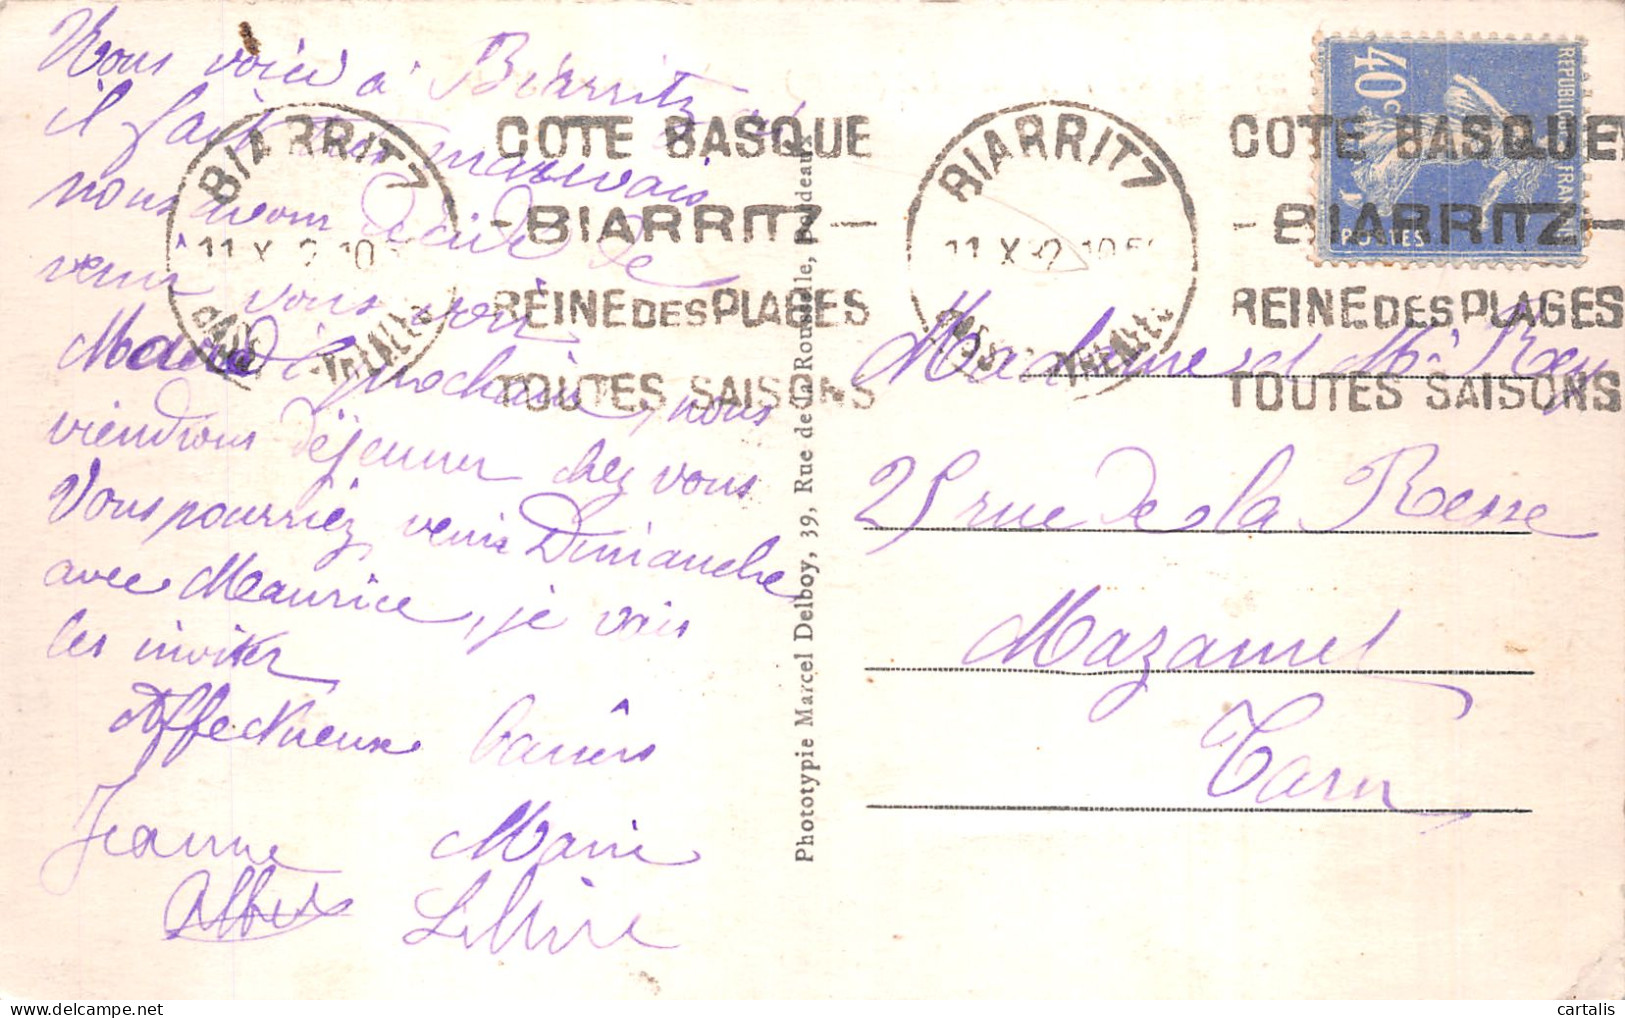 Nous voici à Biarritz où
il fait très mauvais
nous avons décidé de
venir vous voir
Mardi prochain, nous
viendrons déjeuner chez vous
Vous pourriez venir Dimanche
avec Maurice, je vais
les inviter
Affectueux baisers
Jeanne Marie
Albert
Phototypie Marcel Delboy, 39, Rue de la Rousselle, Bordeaux
BIARRITZ
11 X 2 10
COTE BASQUE
-BIARRITZ-
REINE DES PLAGES
TOUTES SAISONS
BIARRITZ
11 X 32 10
COTE BASQUE
-BIARRITZ-
REINE DES PLAGES
TOUTES SAISONS
40c
REPUBLIQUE FRANCAISE
POSTES
Madame et Mr Rey
25 rue de la Resse
Mazamet
Tarn
cartalis